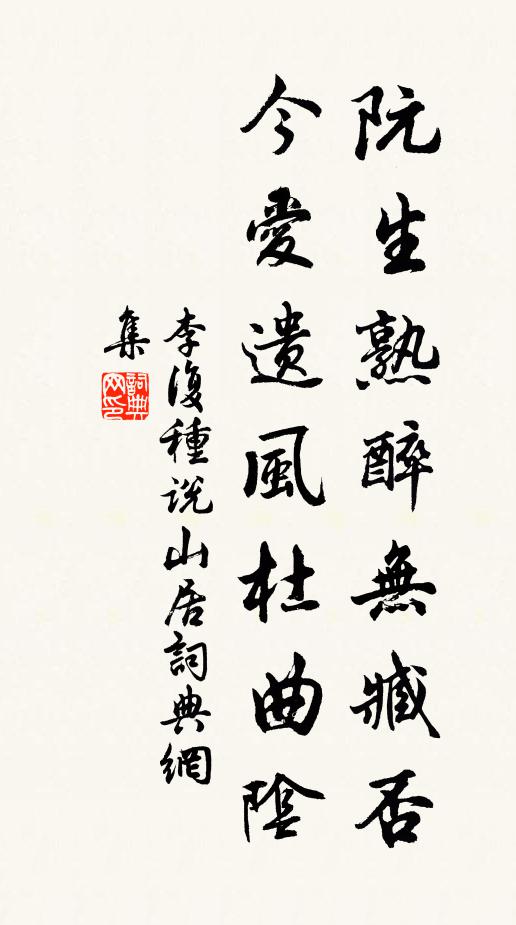 阮生熟醉無臧否
今愛遺風杜曲陰
李復種說山居詞典網
集
詞典
网印